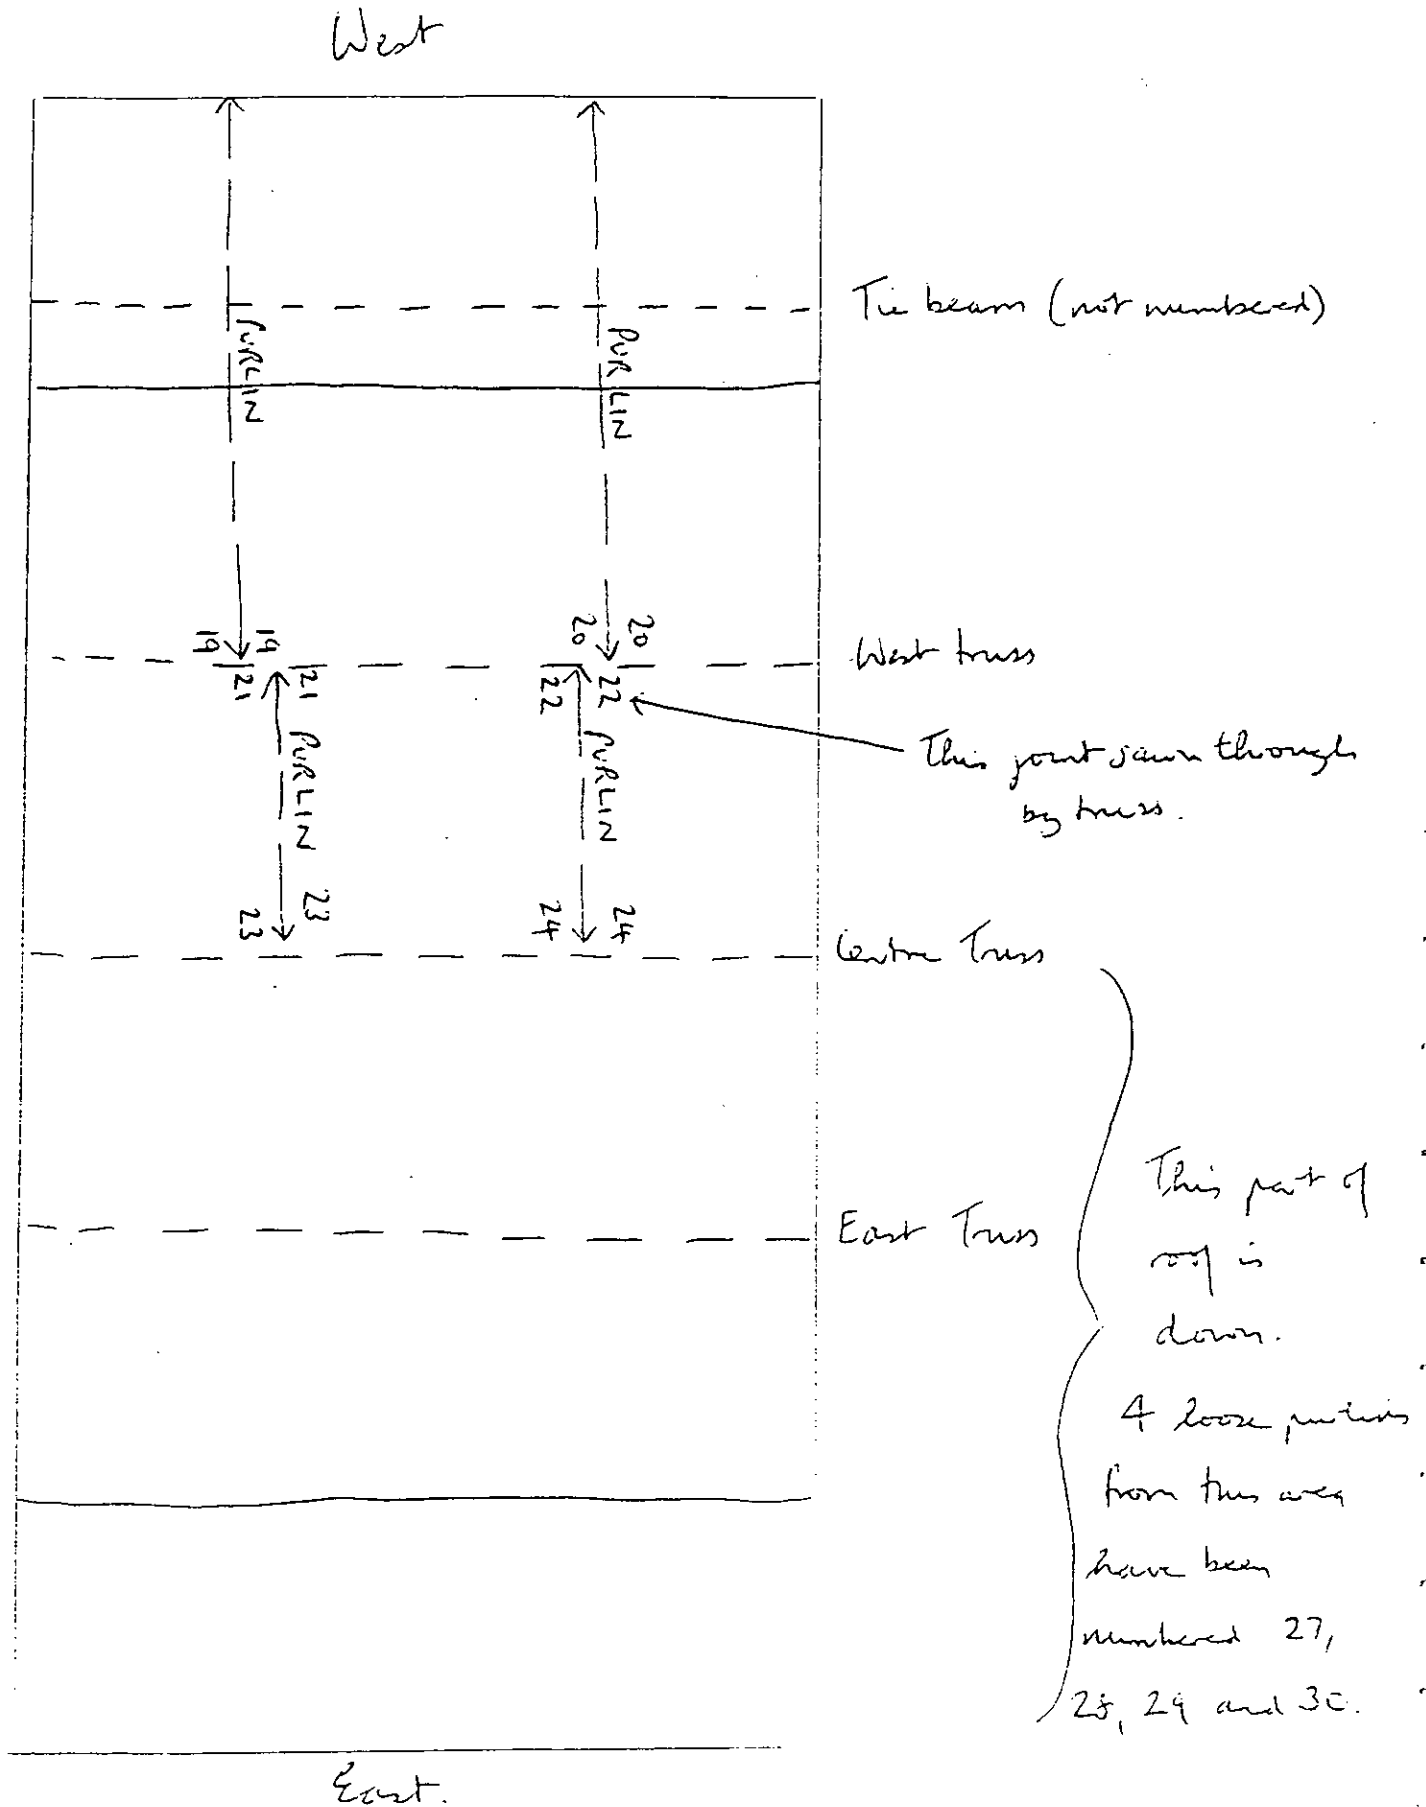 West
Tie beam (not numbered)
PURLIN
PURLIN
19 19
20 20
West truss
21 21
22 22
This joint sawn through
by truss.
PURLIN
PURLIN
23 23
24 24
Centre Truss
This part of
roof is
down.
East Truss
4 loose purlins
from this area
have been
numbered 27,
28, 29 and 30.
East.